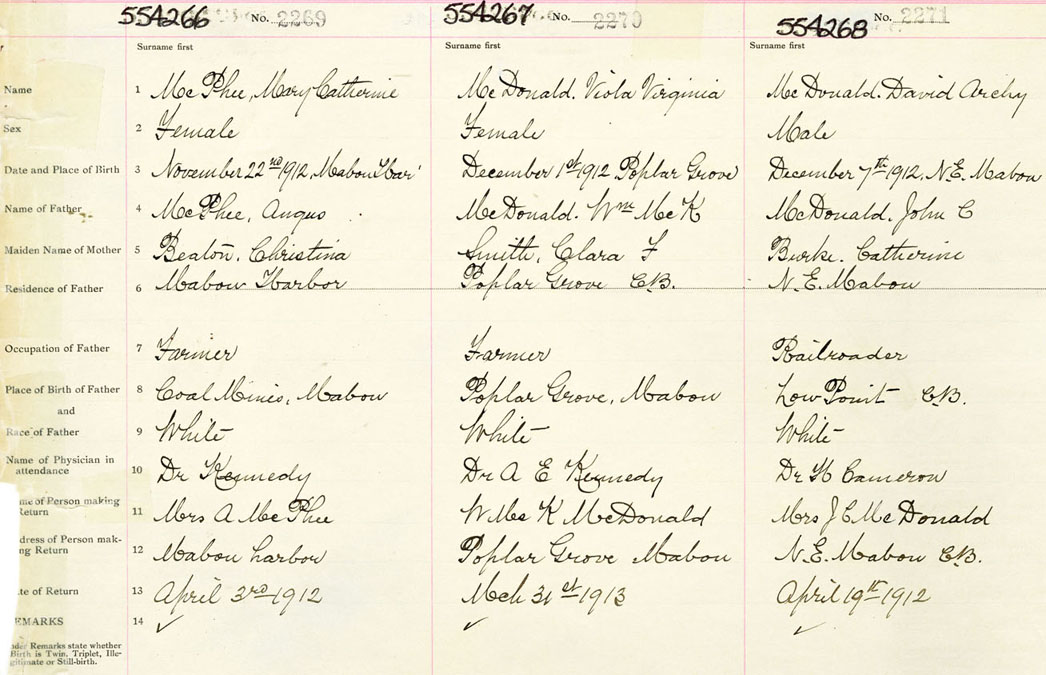 554266 No. 2269 554267 No. 2270 554268 No. 2271
Surname first Surname first Surname first
Name 1 Mc Phee, Mary Catherine Mc Donald. Viola Virginia Mc Donald. David Archy
Sex 2 Female Female Male
Date and Place of Birth 3 November 22nd 1912, Mabou Har' December 1st 1912 Poplar Grove December 7th 1912, N.E. Mabou
Name of Father 4 McPhee, Angus McDonald. Wm Mc K McDonald. John C
Maiden Name of Mother 5 Beaton, Christina Smith, Clara F Burke. Catherine
Residence of Father 6 Mabou Harbor Poplar Grove C.B. N.E. Mabou
Occupation of Father 7 Farmer Farmer Railroader
Place of Birth of Father 8 Coal Mines, Mabou Poplar Grove, Mabou Low Point C.B.
and
Race of Father 9 White White White
Name of Physician in
attendance 10 Dr Kennedy Dr A E Kennedy Dr Cameron
me of Person making
Return 11 Mrs A Mc Phee W Mc K McDonald Mrs J C Mc Donald
dress of Person mak-
ng Return 12 Mabou harbor Poplar Grove Mabou N.E. Mabou C.B.
te of Return 13 April 3rd 1912 Mch 31st 1913 April 19th 1912
EMARKS 14
der Remarks state whether
Birth is Twin, Triplet, Ille-
gitimate or Still-birth.